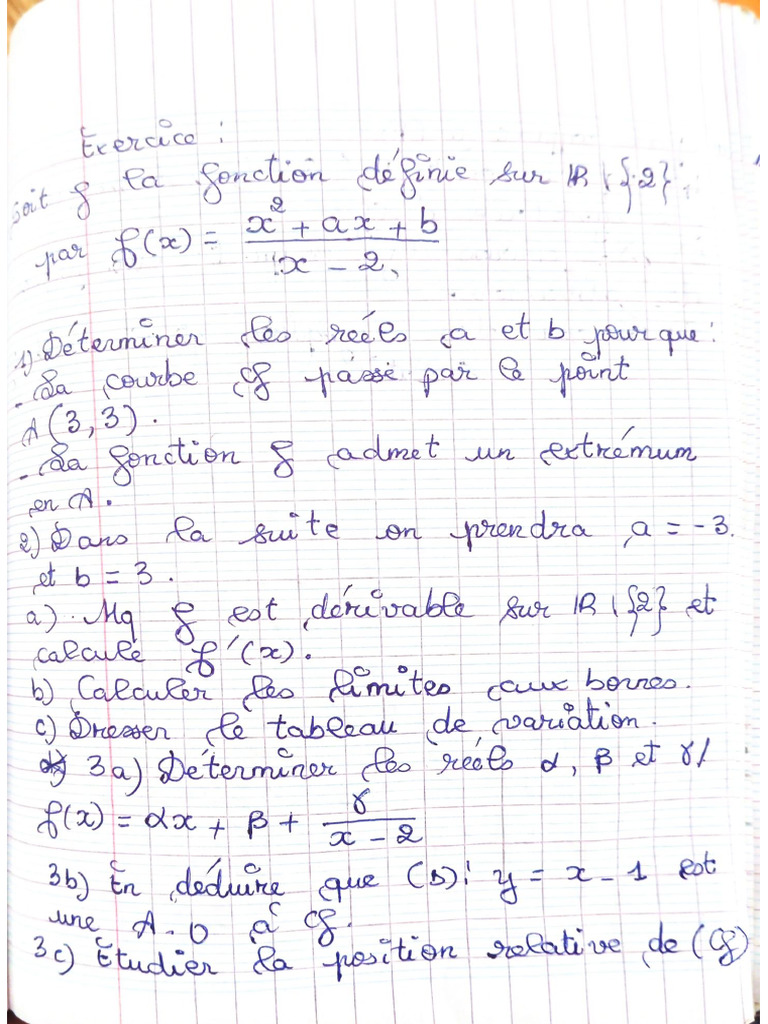 Exercice :
soit f la fonction définie sur ℝ\{2}
par f(x) = (x² + ax + b)/(x - 2)
1) Déterminer les réels a et b pour que :
- La courbe Cf passe par le point
A(3,3).
- La fonction f admet un extrémum
en A.
2) Dans la suite on prendra a = -3.
et b = 3.
a). Mq f est dérivable sur ℝ\{2} et
calculé f'(x).
b) Calculer les limites aux bornes.
c) Dresser le tableau de variation.
3a) Déterminer les réels α, β et γ/
f(x) = αx + β + γ/(x - 2)
3b) En déduire que (D): y = x - 1 est
une A.O à Cf.
3c) Étudier la position relative de (Cf)